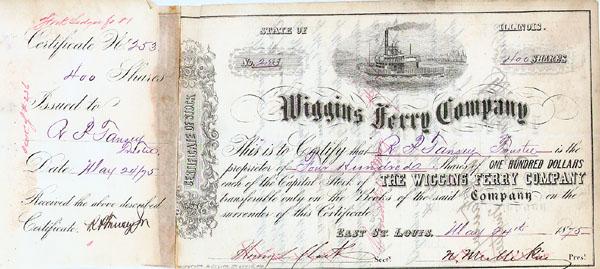 Certificate No 253
400 Shares
Issued to
R P Tansey
Trustee
Date May 24/75
Received the above described
Certificate.
STATE OF ILLINOIS.
No. 253 400 SHARES
CERTIFICATE OF STOCK
Wiggins Ferry Company
This is to Certify that R P Tansey Trustee is the
proprietor of Four Hundred Shares of ONE HUNDRED DOLLARS
each of the Capital Stock of THE WIGGINS FERRY COMPANY
transferable only on the Books of the said Company on the
surrender of this Certificate
EAST ST. LOUIS, May 24th 1875
Henry Secy. Prest